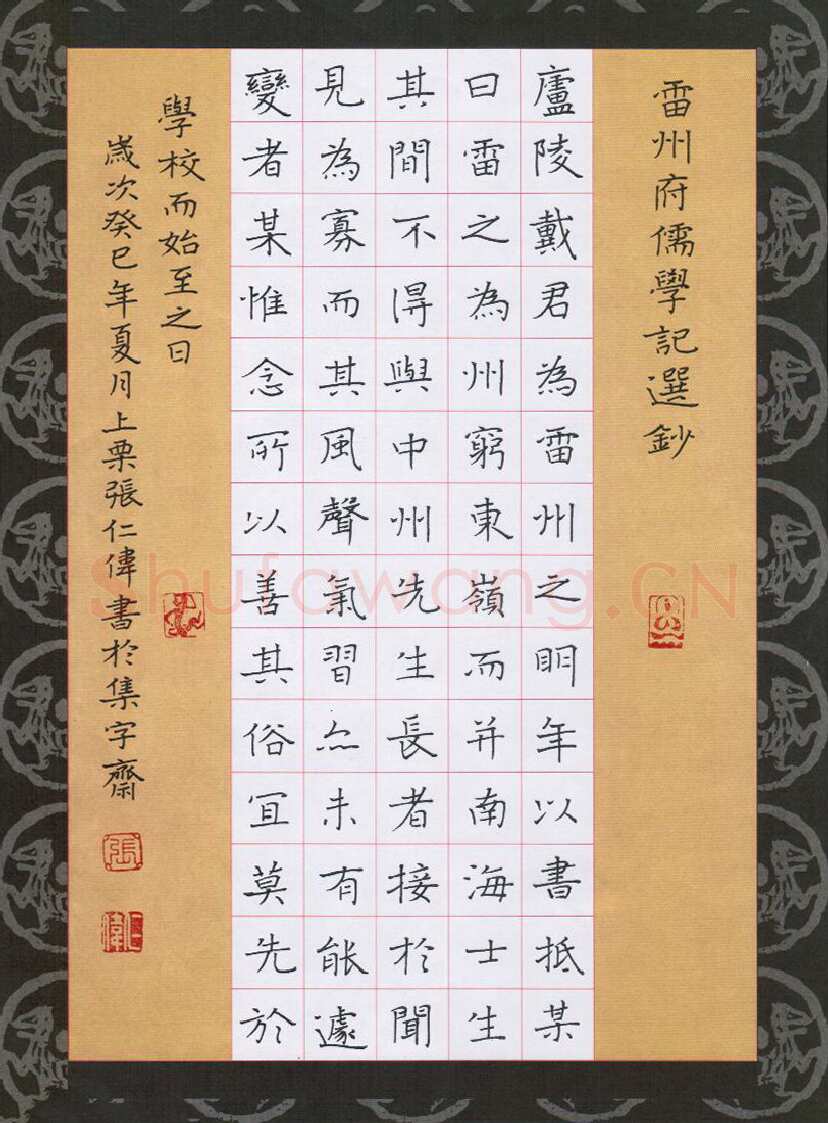 雷州府儒學記選鈔
廬陵戴君為雷州之明年以書抵某
曰雷之為州窮東嶺而并南海士生
其間不得與中州先生長者接於聞
見為寡而其風聲氣習亦未有能遽
變者某惟念所以善其俗宜莫先於
學校而始至之日
歲次癸巳年夏月上栗張仁偉書於集字齋
張
Shufawang.CN